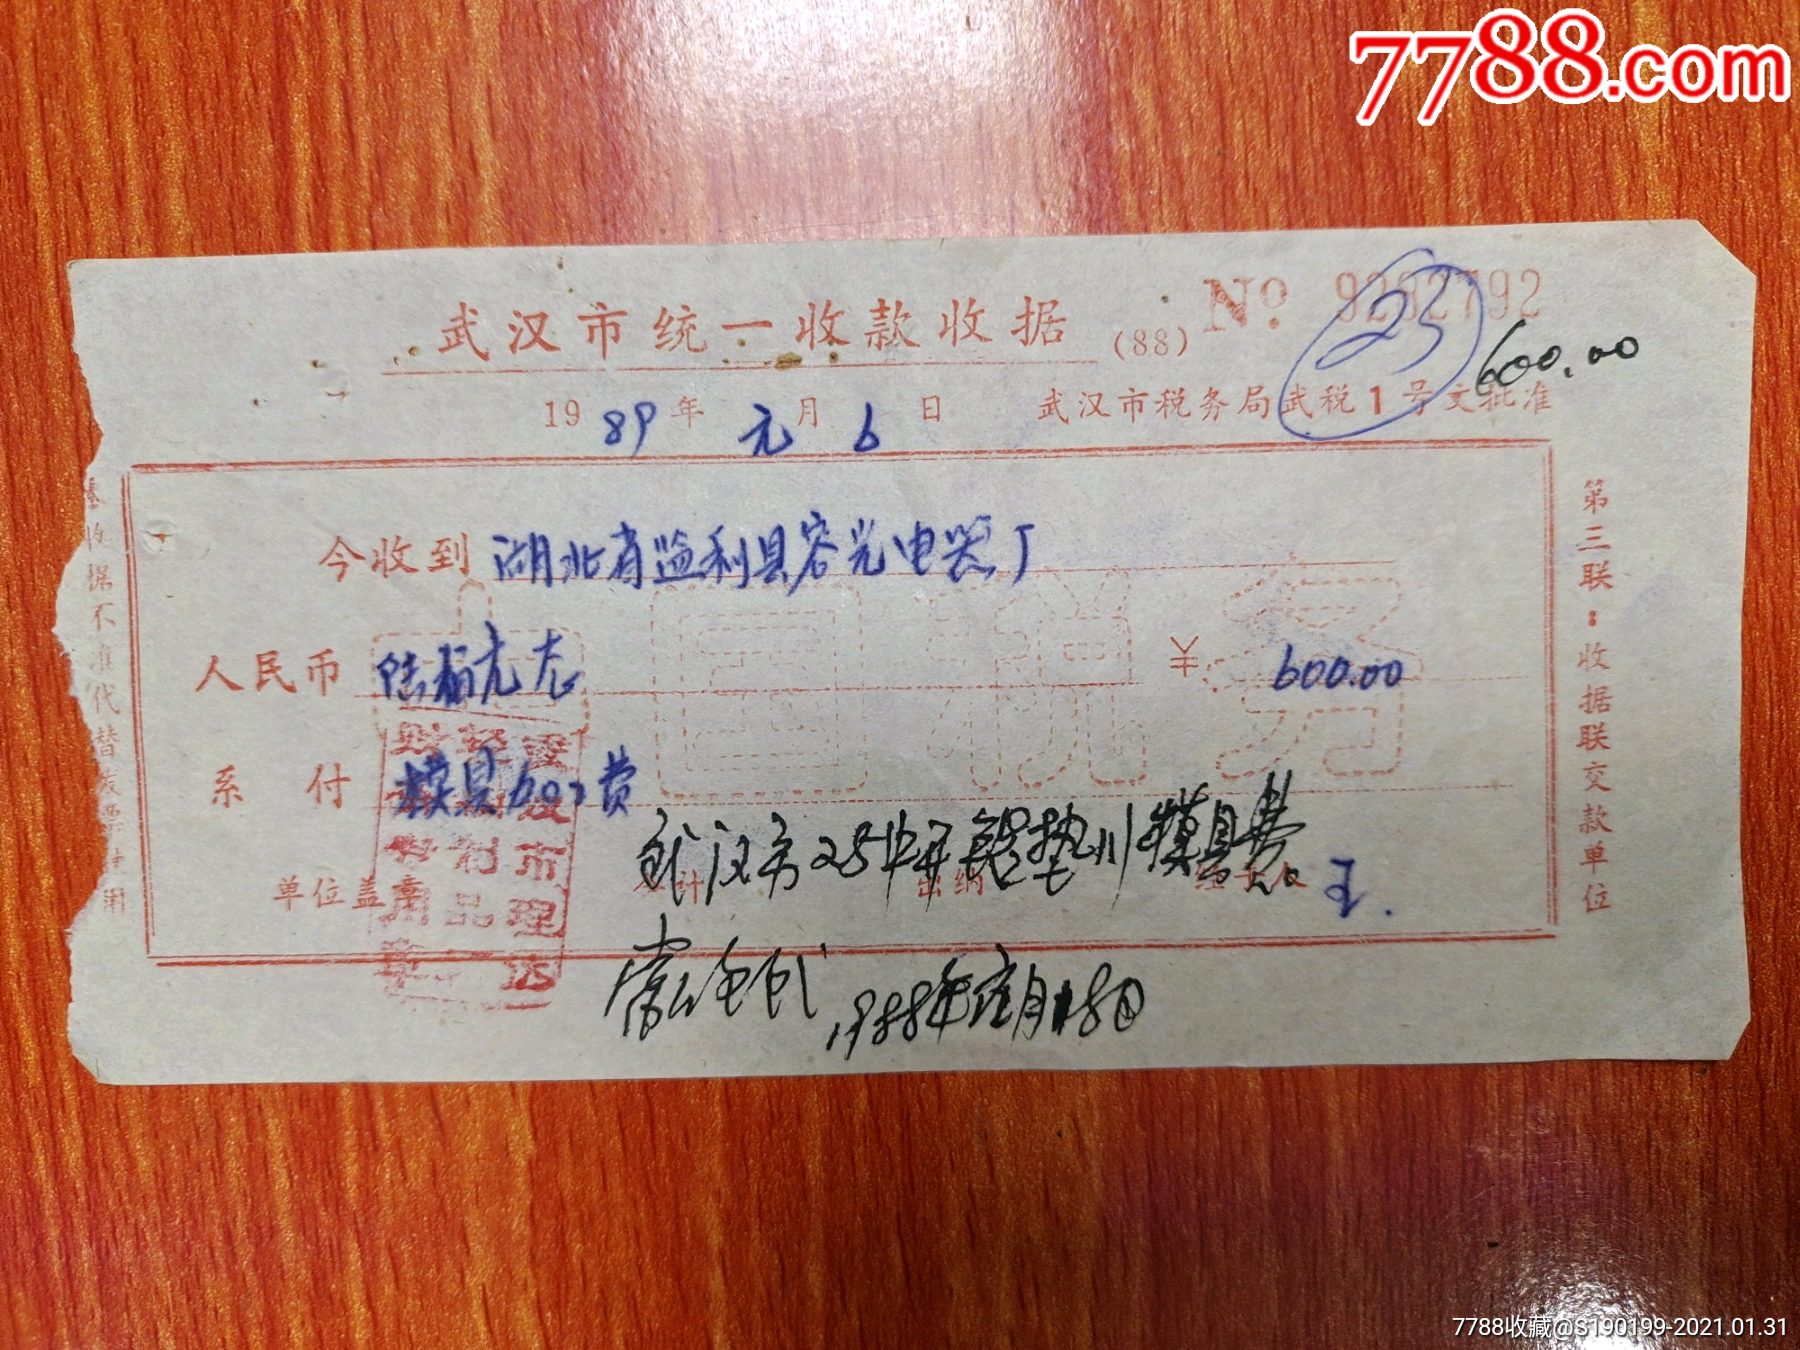 7788.com
武汉市统一收款收据 (88) No 9232792
23
600.00
1989年元月6日 武汉市税务局武税1号文批准
今收到 湖北省监利县容光电器厂
人民币 陆佰元 ¥ 600.00
系付 模具加工费
武汉市25中开 垫川模具费
单位盖章 会计 出纳 经手人 王.
1988年元月18日
收据不准代替发票使用
第三联：收据联交款单位
7788收藏@S190199-2021.01.31